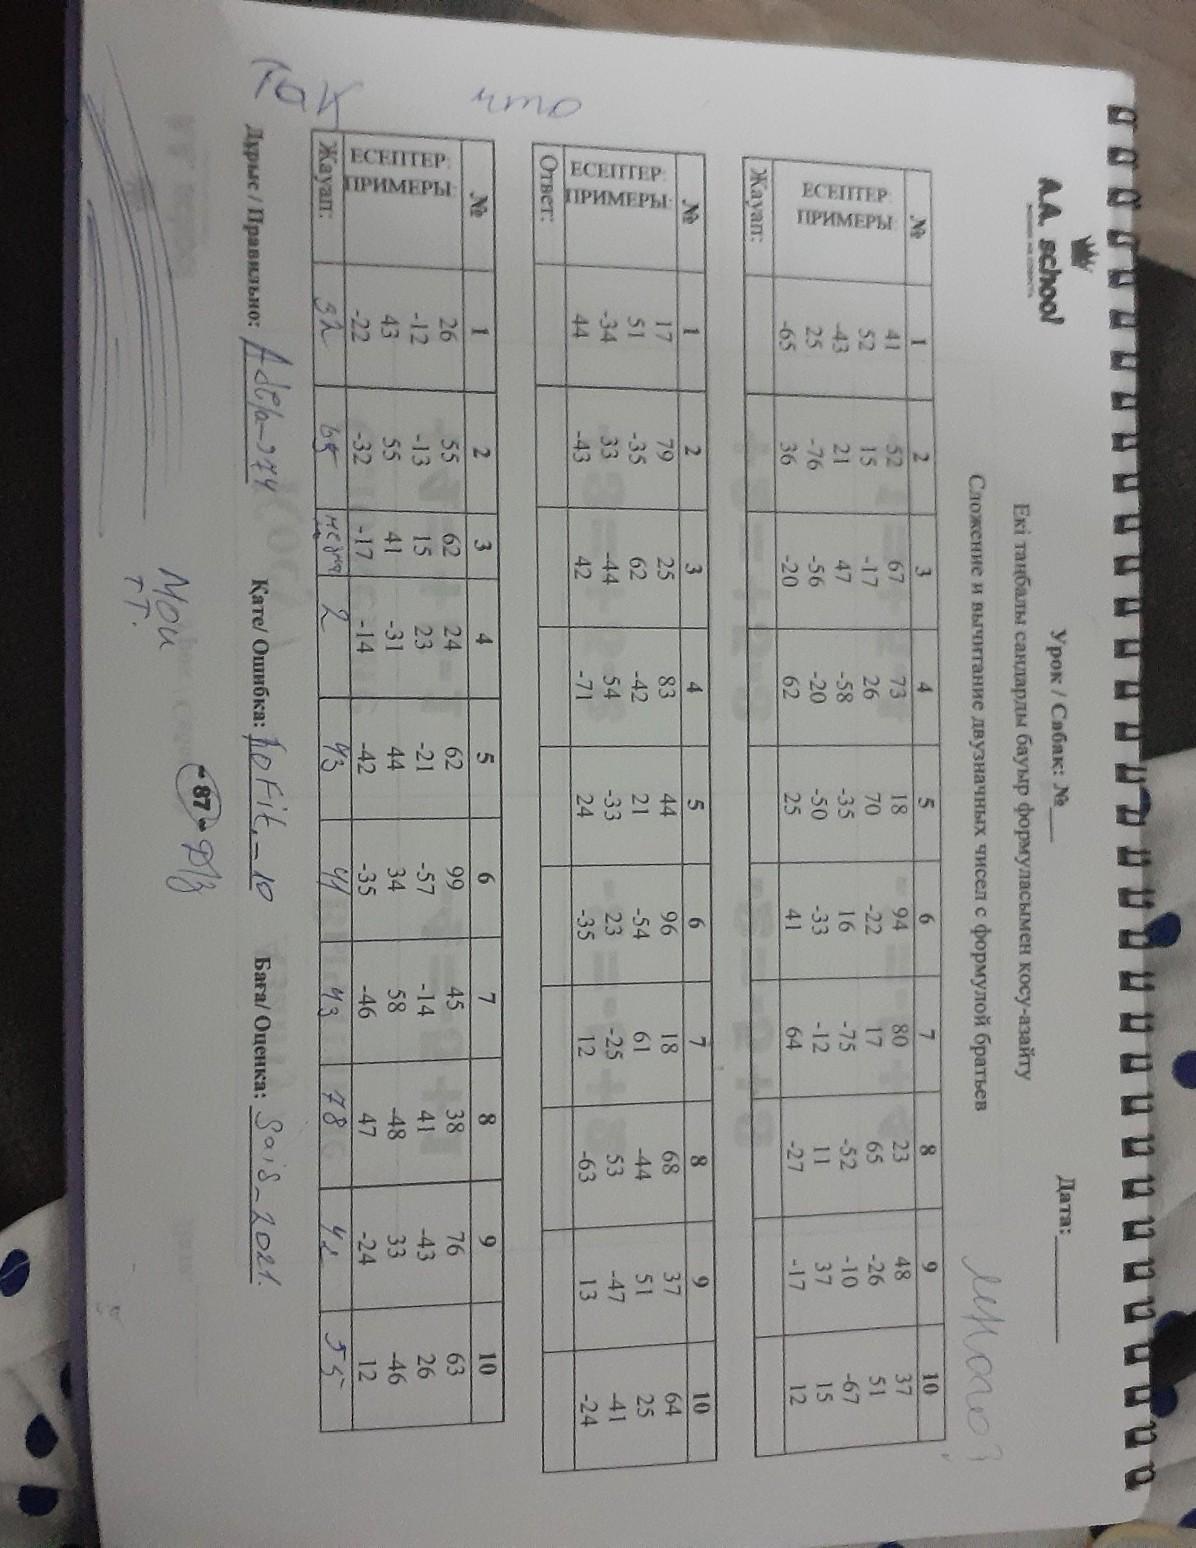 A.A. school
Урок / Сабақ: №___
Дата:________
Екі таңбалы сандарды бауыр формуласымен қосу-азайту
Сложение и вычитание двузначных чисел с формулой братьев
много?
№ 1 2 3 4 5 6 7 8 9 10
ЕСЕПТЕР: ПРИМЕРЫ:
41 52 67 73 18 94 80 23 48 37
52 15 -17 26 70 -22 17 65 -26 51
-43 21 47 -58 -35 16 -75 -52 -10 -67
25 -76 -56 -20 -50 -33 -12 11 37 15
-65 36 -20 62 25 41 64 -27 -17 12
Жауап:
№ 1 2 3 4 5 6 7 8 9 10
ЕСЕПТЕР: ПРИМЕРЫ:
17 79 25 83 44 96 18 68 37 64
51 -35 62 -42 21 -54 61 -44 51 25
-34 33 -44 54 -33 23 -25 53 -47 -41
44 -43 42 -71 24 -35 12 -63 13 -24
Ответ:
что
№ 1 2 3 4 5 6 7 8 9 10
ЕСЕПТЕР: ПРИМЕРЫ:
26 55 62 24 62 99 45 38 76 63
-12 -13 15 23 -21 -57 -14 41 -43 26
43 55 41 -31 44 34 58 -48 33 -46
-22 -32 -17 -14 -42 -35 -46 47 -24 12
Жауап: 32 65 2 43 41 43 78 42 55
так
Дұрыс / Правильно:
Қате/ Ошибка:
Баға/ Оценка: Said_2021.
- 87 - Д/з
Мои
тт.